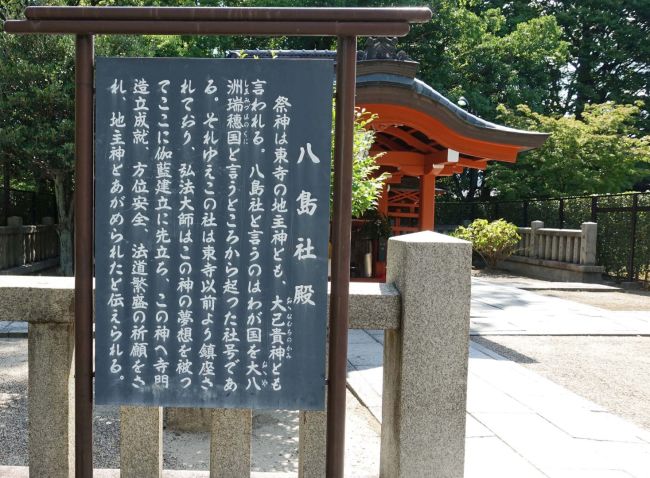 八島社殿
祭神は東寺の地主神とも、大己貴神とも
おゝなむちのかみ
言われる。八島社と言うのはわが国を大八
おゝや
洲瑞穂国と言うところから起った社号であ
しまみづほのくに
る。それゆえこの社は東寺以前よう鎮座さ
れており、弘法大師はこの神の夢想を被つ
てここに伽藍建立に先立ち、この神へ寺門
造立成就、方位安全、法道繁盛の祈願をさ
れ、地主神とあがめられたと伝えられる。